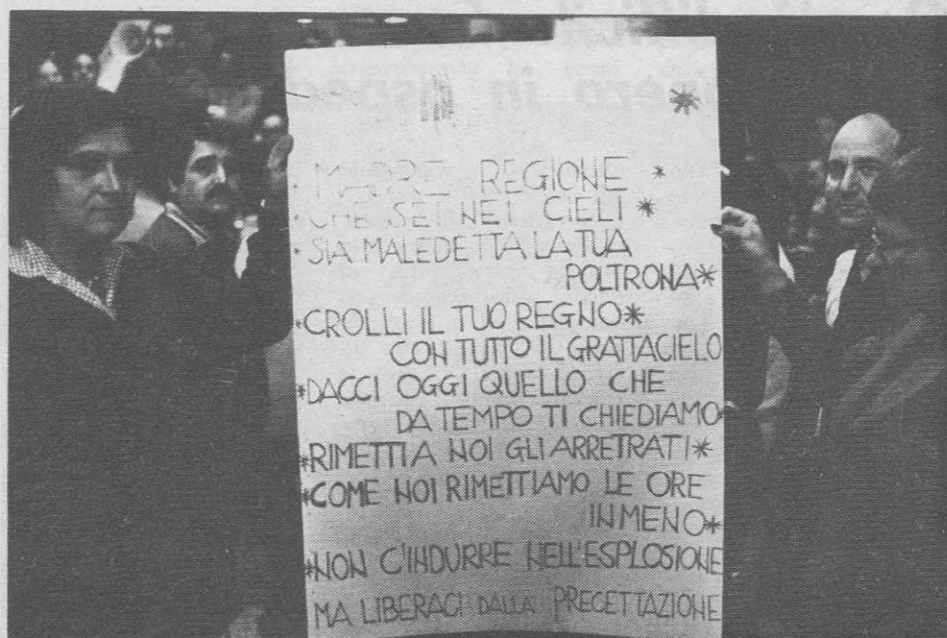 *
MADRE REGIONE *
* CHE SEI NEI CIELI *
* SIA MALEDETTA LA TUA
POLTRONA*
*CROLLI IL TUO REGNO*
CON TUTTO IL GRATTACIELO
*DACCI OGGI QUELLO CHE
DA TEMPO TI CHIEDIAMO
*RIMETTI A NOI GLI ARRETRATI*
*COME NOI RIMETTIAMO LE ORE
IN MENO*
*NON C'INDURRE NELL'ESPLOSIONE
MA LIBERACI DALLA PRECETTAZIONE